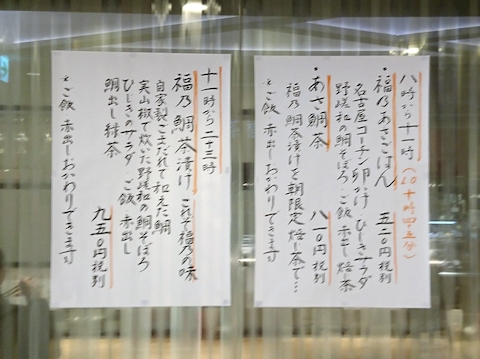 八時から十一時（LO十時四五分）
・福乃あさごはん 五二〇円税別
名古屋コーチン卵かけ ひじきサラダ
野嵯和の鯛そぼろ ご飯 赤出し 焙じ茶
・あさ鯛茶 八一〇円税別
福乃鯛茶漬けを朝限定焙じ茶で…
＊ご飯 赤出しおかわりできます
十一時から二十三時
福乃鯛茶漬け これぞ福乃の味
自家製ごまだれで和えた鯛
実山椒で炊いた野嵯和の鯛そぼろ
ひじきのサラダ ご飯 赤出し
鯛出し緑茶 九五〇円税別
＊ご飯 赤出しおかわりできます